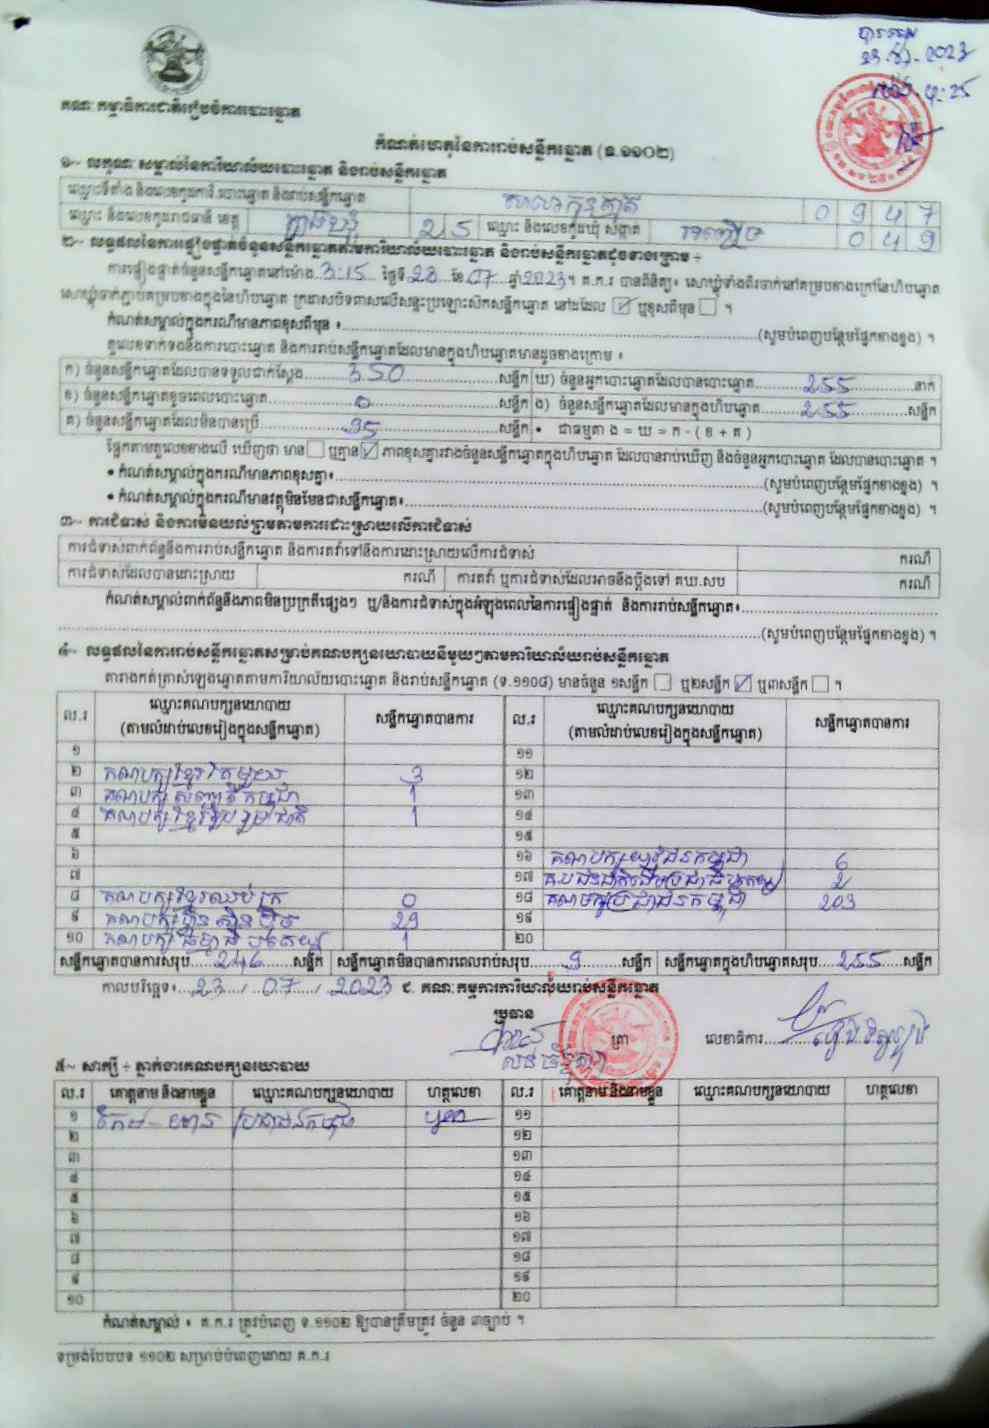 ២៣.៧.២០២៣
៤:25
គណៈកម្មាធិការជាតិរៀបចំការបោះឆ្នោត
កំណត់ហេតុនៃការរាប់សន្លឹកឆ្នោត (ទ.១១០២)
១~ លក្ខណៈសម្គាល់នៃការិយាល័យបោះឆ្នោត និងរាប់សន្លឹកឆ្នោត
ឈ្មោះទីតាំង និងលេខកូដការិ.បោះឆ្នោត និងរាប់សន្លឹកឆ្នោត 0 9 4 7
ឈ្មោះ និងលេខកូដរាជធានី ខេត្ត ត្បូងឃ្មុំ 2 5 ឈ្មោះ និងលេខកូដឃុំ សង្កាត់ 0 4 9
២~ លទ្ធផលនៃការផ្ទៀងផ្ទាត់ចំនួនសន្លឹកឆ្នោតតាមការិយាល័យបោះឆ្នោត និងរាប់សន្លឹកឆ្នោតដូចខាងក្រោម ÷
ការផ្ទៀងផ្ទាត់ចំនួនសន្លឹកឆ្នោតនៅម៉ោង 3:15 ថ្ងៃទី 23 ខែ 07 ឆ្នាំ 2023។ គ.ក.រ បានពិនិត្យ៖ សោឃ្លុំទាំងពីរចាក់នៅគម្របខាងក្រៅនៃហិបឆ្នោត
សោឃ្លុំចាក់ភ្ជាប់គម្របខាងក្នុងនៃហិបឆ្នោត ក្រដាសបិទពាសលើសន្ទះប្រឡោះសឹកសន្លឹកឆ្នោត នៅដដែល ☑ ឬខុសពីមុន ☐ ។
កំណត់សម្គាល់ក្នុងករណីមានភាពខុសពីមុន ៖ (សូមបំពេញបន្ថែមផ្នែកខាងខ្នង) ។
តួលេខទាក់ទងនឹងការបោះឆ្នោត និងការរាប់សន្លឹកឆ្នោតដែលមានក្នុងហិបឆ្នោតមានដូចខាងក្រោម ៖
ក) ចំនួនសន្លឹកឆ្នោតដែលបានទទួលជាក់ស្តែង 350 សន្លឹក ឃ) ចំនួនអ្នកបោះឆ្នោតដែលបានបោះឆ្នោត 255 នាក់
ខ) ចំនួនសន្លឹកឆ្នោតខូចពេលបោះឆ្នោត 0 សន្លឹក ង) ចំនួនសន្លឹកឆ្នោតដែលមានក្នុងហិបឆ្នោត 255 សន្លឹក
គ) ចំនួនសន្លឹកឆ្នោតដែលមិនបានប្រើ 95 សន្លឹក • ជាធម្មតា ង = ឃ = ក - ( ខ + គ )
ផ្អែកតាមតួលេខខាងលើ ឃើញថា មាន ☐ ឬគ្មាន ☑ ភាពខុសគ្នារវាងចំនួនសន្លឹកឆ្នោតក្នុងហិបឆ្នោត ដែលបានរាប់ឃើញ និងចំនួនអ្នកបោះឆ្នោត ដែលបានបោះឆ្នោត ។
• កំណត់សម្គាល់ក្នុងករណីមានភាពខុសគ្នា៖ (សូមបំពេញបន្ថែមផ្នែកខាងខ្នង) ។
• កំណត់សម្គាល់ក្នុងករណីមានវត្ថុមិនមែនជាសន្លឹកឆ្នោត៖ (សូមបំពេញបន្ថែមផ្នែកខាងខ្នង) ។
៣~ ការជំទាស់ និងការមិនយល់ព្រមតាមការដោះស្រាយលើការជំទាស់
ការជំទាស់ពាក់ព័ន្ធនឹងការរាប់សន្លឹកឆ្នោត និងការតវ៉ាទៅនឹងការដោះស្រាយលើការជំទាស់ ករណី
ការជំទាស់ដែលបានដោះស្រាយ ករណី ការតវ៉ា ឬការជំទាស់ដែលអាចនឹងប្តឹងទៅ គឃ.សប ករណី
កំណត់សម្គាល់ពាក់ព័ន្ធនឹងភាពមិនប្រក្រតីផ្សេងៗ ឬ/និងការជំទាស់ក្នុងអំឡុងពេលនៃការផ្ទៀងផ្ទាត់ និងការរាប់សន្លឹកឆ្នោត៖
(សូមបំពេញបន្ថែមផ្នែកខាងខ្នង) ។
៤~ លទ្ធផលនៃការរាប់សន្លឹកឆ្នោតសម្រាប់គណបក្សនយោបាយនីមួយៗតាមការិយាល័យរាប់សន្លឹកឆ្នោត
តារាងកត់ត្រាសំឡេងឆ្នោតតាមការិយាល័យបោះឆ្នោត និងរាប់សន្លឹកឆ្នោត (ទ.១១០៨) មានចំនួន ១សន្លឹក ☐ ឬ២សន្លឹក ☑ ឬ៣សន្លឹក ☐ ។
ល.រ ឈ្មោះគណបក្សនយោបាយ (តាមលំដាប់លេខរៀងក្នុងសន្លឹកឆ្នោត) សន្លឹកឆ្នោតបានការ ល.រ ឈ្មោះគណបក្សនយោបាយ (តាមលំដាប់លេខរៀងក្នុងសន្លឹកឆ្នោត) សន្លឹកឆ្នោតបានការ
១ ១១
២ គណបក្សខ្មែររួបរួម 3 ១២
៣ គណបក្ស សញ្ជាតិកម្ពុជា 1 ១៣
៤ គណបក្សខ្មែររួបរួមជាតិ 1 ១៤
៥ ១៥
៦ ១៦ គណបក្សយុវជនកម្ពុជា 6
៧ ១៧ 2
៨ គណបក្សខ្មែរឈប់ក្រ 0 ១៨ គណបក្សប្រជាជនកម្ពុជា 203
៩ គណបក្សហ៊្វុនស៊ិនប៉ិច 29 ១៩
១០ គណបក្ស ធម្មាធិបតេយ្យ 1 ២០
សន្លឹកឆ្នោតបានការសរុប 246 សន្លឹក សន្លឹកឆ្នោតមិនបានការពេលរាប់សរុប 9 សន្លឹក សន្លឹកឆ្នោតក្នុងហិបឆ្នោតសរុប 255 សន្លឹក
កាលបរិច្ឆេទ៖ 23 / 07 / 2023 ជ. គណៈកម្មការការិយាល័យរាប់សន្លឹកឆ្នោត
ប្រធាន
ត្រា លេខាធិការ
៥~ សាក្សី ÷ ភ្នាក់ងារគណបក្សនយោបាយ
ល.រ គោត្តនាម និងនាមខ្លួន ឈ្មោះគណបក្សនយោបាយ ហត្ថលេខា ល.រ គោត្តនាម និងនាមខ្លួន ឈ្មោះគណបក្សនយោបាយ ហត្ថលេខា
១ ប្រជាជនកម្ពុជា ១១
២ ១២
៣ ១៣
៤ ១៤
៥ ១៥
៦ ១៦
៧ ១៧
៨ ១៨
៩ ១៩
១០ ២០
កំណត់សម្គាល់ ៖ គ.ក.រ ត្រូវបំពេញ ទ.១១០២ ឱ្យបានត្រឹមត្រូវ ចំនួន ៣ច្បាប់ ។
ទម្រង់បែបបទ ១១០២ សម្រាប់បំពេញដោយ គ.ក.រ